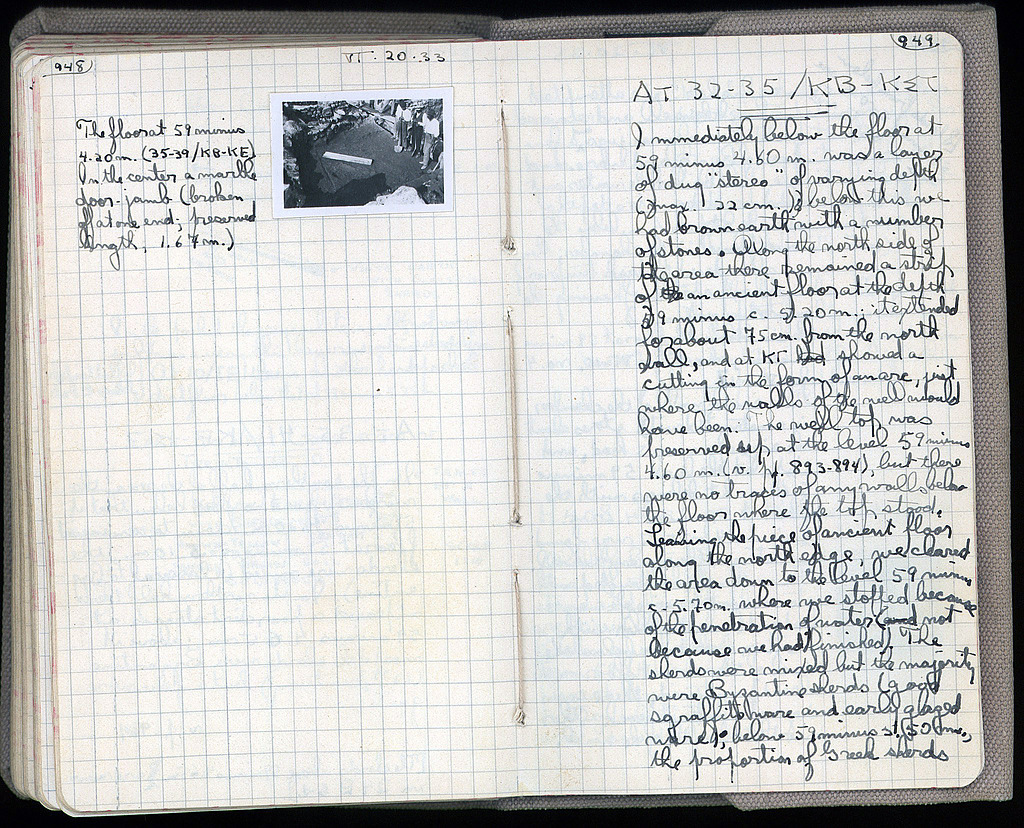 948
VI. 20. 33
The floor at 59 minus
4.20 m. (35-39/KB-KE)
In the center a marble
door-jamb (broken
off at one end; preserved
length, 1.67 m.)
949
AT 32-35 /KB-KΣT
Immediately below the floor at
59 minus 4.60 m. was a layer
of dug "stereo" of varying depth
(max. 22 cm.); below this we
had brown earth with a number
of stones. Along the north side of
the area there remained a strip
of an ancient floor at the depth
59 minus c. 5.20 m.; it extended
for about 75 cm. from the north
wall, and at showed a
cutting in the form of an arc, just
where the walls of the well would
have been. The well top was
preserved up at the level 59 minus
4.60 m. (v. pp. 893-894), but there
were no traces of any walls below
the floor where the top stood.
Leaving the piece of ancient floor
along the north edge, we cleared
the area down to the level 59 minus
c. 5.70 m. where we stopped because
of the penetration of water (and not
because we had finished). The
sherds were mixed but the majority
were Byzantine sherds (good
sgraffito ware and early glazed
ware); below 59 minus 5.50 m.,
the proportion of Greek sherds